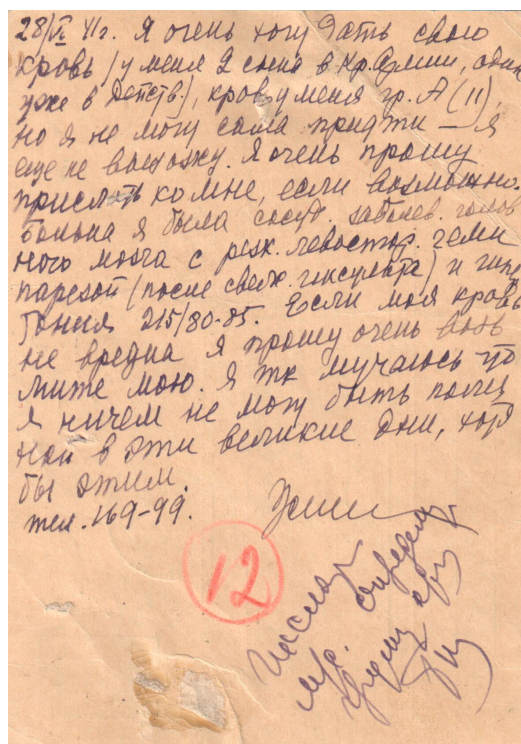 28/VI 41г. Я очень хочу дать свою
кровь (у меня 2 сына в Кр. Армии, один
уже в действ.), кровь у меня гр. А (II),
но я не могу сама придти — я
еще не выхожу. Я очень прошу
прислать ко мне, если возможно.
Больна я была сосуд. заболев. голов
ного мозга с резк. левостор. геми
парезой (после свеж. инсульта) и гипер
тония 215/80-85. Если моя кровь
не вредна я прошу очень возь
мите мою. Я так мучаюсь что
я ничем не могу быть полез
ной в эти великие дни, хотя
бы этим.
тел. 169-99.
12
Послать
м/с. определить
группу крови